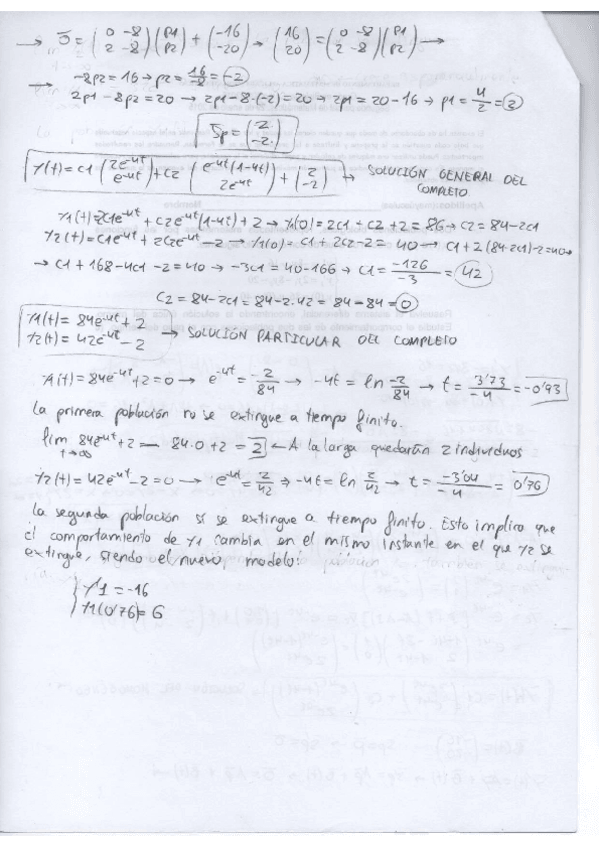 → 0̄ = (0 -8; 2 -8)(p1; p2) + (-16; -20) → (16; 20) = (0 -8; 2 -8)(p1; p2) →
→ -8p2 = 16 → p2 = 16/-8 = -2
2p1 - 8p2 = 20 → 2p1 - 8·(-2) = 20 → 2p1 = 20 - 16 → p1 = 4/2 = 2
Sp = (2; -2)
Y(t) = C1 (2e^-4t; e^-4t) + C2 (e^-4t(1-4t); 2e^-4t) + (2; -2) → SOLUCIÓN GENERAL DEL
COMPLETO.
Y1(t) = 2C1e^-4t + C2e^-4t(1-4t) + 2 → Y1(0) = 2C1 + C2 + 2 = 86 → C2 = 84 - 2C1
Y2(t) = C1e^-4t + 2C2e^-4t - 2 → Y2(0) = C1 + 2C2 - 2 = 40 → C1 + 2(84 - 2C1) - 2 = 40 →
→ C1 + 168 - 4C1 - 2 = 40 → -3C1 = 40 - 166 → C1 = -126/-3 = 42
C2 = 84 - 2C1 = 84 - 2·42 = 84 - 84 = 0
Y1(t) = 84e^-4t + 2
Y2(t) = 42e^-4t - 2 → SOLUCIÓN PARTICULAR DEL COMPLETO
Y1(t) = 84e^-4t + 2 = 0 → e^-4t = -2/84 → -4t = ln -2/84 → t = 3'73/-4 = -0'93
La primera población no se extingue a tiempo finito.
lim t→∞ 84e^-4t + 2 = 84·0 + 2 = 2 ← A la larga quedarán 2 individuos
Y2(t) = 42e^-4t - 2 = 0 → e^-4t = 2/42 → -4t = ln 2/42 → t = -3'04/-4 = 0'76
La segunda población sí se extingue a tiempo finito. Esto implica que
el comportamiento de Y1 cambia en el mismo instante en el que Y2 se
extingue, siendo el nuevo modelo:
Y'1 = -16
Y1(0'76) = 6